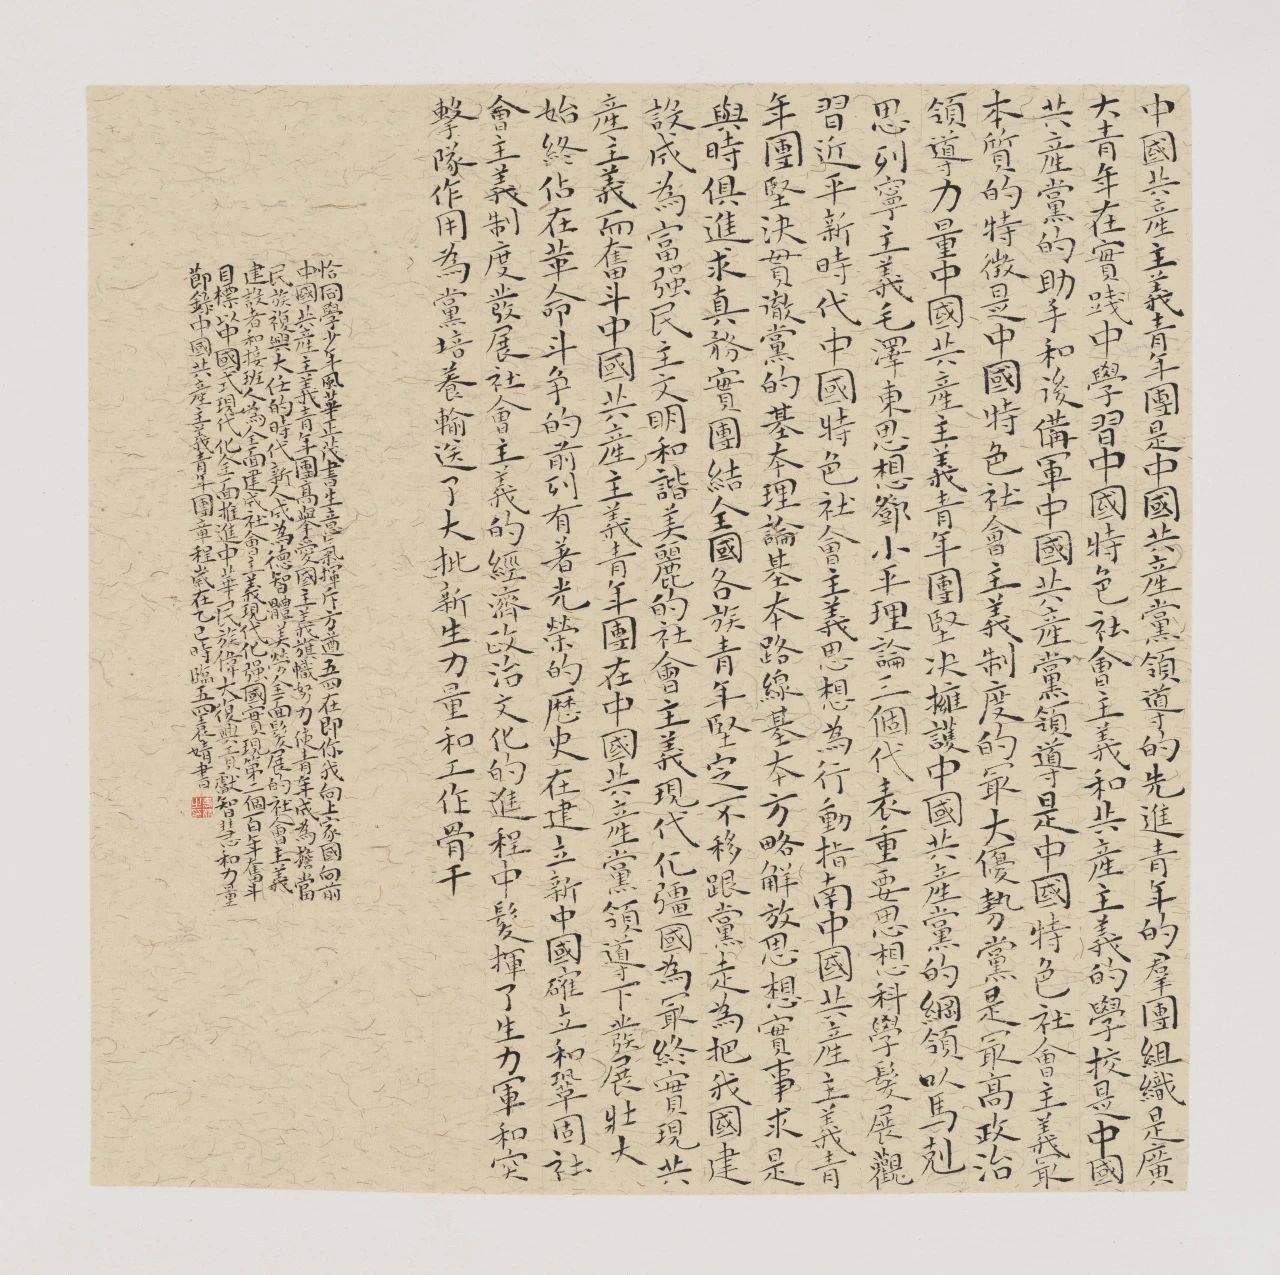 中國共産主義青年團是中國共産黨領導的先進青年的羣團組織是廣
大青年在實踐中學習中國特色社會主義和共産主義的學校是中國
共産黨的助手和後備軍中國共産黨領導是中國特色社會主義㝡
本質的特徵是中國特色社會主義制度的㝡大優勢黨是㝡高政治
領導力量中國共産主義青年團堅决擁護中國共産黨的綱領以馬剋
思列寧主義毛澤東思想鄧小平理論三個代表重要思想科學髮展觀
習近平新時代中國特色社會主義思想為行動指南中國共産主義青
年團堅决貫徹黨的基本理論基本路線基本方略解放思想實事求是
與時俱進求真務實團結全國各族青年堅定不移跟黨走為把我國建
設成為富强民主文明和諧美麗的社會主義現代化彊國為㝡終實現共
産主義而奮斗中國共産主義青年團在中國共産黨領導下發展壯大
始終佔在革命斗争的前列有著光榮的歷史在建立新中國確立和鞏固社
會主義制度發展社會主義的經濟政治文化的進程中髮揮了生力軍和突
擊隊作用為黨培養輸送了大批新生力量和工作骨干
恰同學少年風華正茂書生意氣揮斥方遒五四在即你我向上家國向前
中國共産主義青年團高舉愛國主義旗幟努力使青年成為擔當
民族復興大任的時代新人成為德智體美勞全面髮展的社會主義
建設者和接班人為全面建成社會主義現代化强國實現第二個百年奮斗
目標以中國式現代化全面推進中華民族偉大復興貢獻智慧和力量
節錄中國共産主義青年團章程嵗在乙巳時臨五四袁婧書